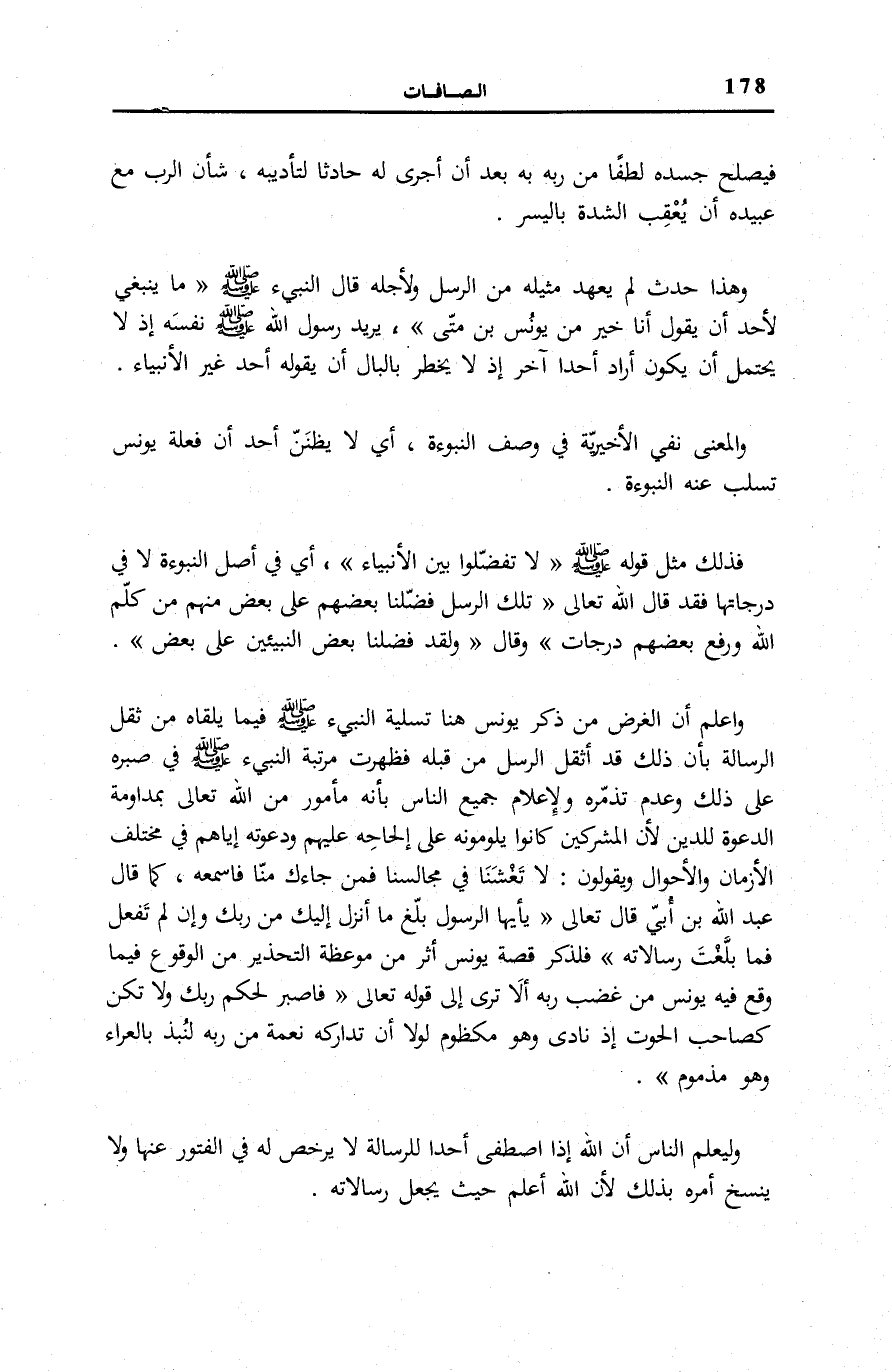 178
الصافات
فيصلح جسده لطفًا من ربه به بعد أن أجرى له حادثا لتأديبه ، شأن الرب مع
عبيده أن يُعْقِب الشدة باليسر .
وهذا حدث لم يعهد مثيله من الرسل ولأجله قال النبيء ﷺ « ما ينبغي
لأحد أن يقول أنا خير من يونُس بن متّى » ، يريد رسول الله ﷺ نفسَه إذ لا
يحتمل أن يكون أراد أحدا آخر إذ لا يخطر بالبال أن يقوله أحد غير الأنبياء .
والمعنى نفي الأخيريّة في وصف النبوءة ، أي لا يظنَنّ أحد أن فعلة يونس
تسلب عنه النبوءة .
فذلك مثل قوله ﷺ « لا تفضّلوا بين الأنبياء » ، أي في أصل النبوءة لا في
درجاتها فقد قال الله تعالى « تلك الرسل فضّلنا بعضهم على بعض منهم من كلّم
الله ورفع بعضهم درجات » وقال « ولقد فضلنا بعض النبيئين على بعض » .
واعلم أن الغرض من ذكر يونس هنا تسلية النبيء ﷺ فيما يلقاه من ثقل
الرسالة بأن ذلك قد أثقل الرسل من قبله فظهرت مرتبة النبيء ﷺ في صبره
على ذلك وعدم تذمّره ولإعلام جميع الناس بأنه مأمور من الله تعالى بمداومة
الدعوة للدين لأن المشركين كانوا يلومونه على إلحاحِه عليهم ودعوته إياهم في مختلف
الأزمان والأحوال ويقولون : لا تَغْشَنَا في مجالسنا فمن جاءك منّا فاسمعه ، كما قال
عبد الله بن أُبيّ قال تعالى « يأيها الرسول بلّغ ما أنزل إليك من ربك وإن لم تَفعل
فما بلَّغْتَ رسالاته » فلذكر قصة يونس أثر من موعظة التحذير من الوقوع فيما
وقع فيه يونس من غضب ربه ألَا ترى إلى قوله تعالى « فاصبر لحكم ربك ولا تكن
كصاحب الحوت إذ نادى وهو مكظوم لولا أن تداركه نعمة من ربه لنُبذ بالعراء
وهو مذموم » .
وليعلم الناس أن الله إذا اصطفى أحدا للرسالة لا يرخص له في الفتور عنها ولا
ينسخ أمره بذلك لأن الله أعلم حيث يجعل رسالاته .